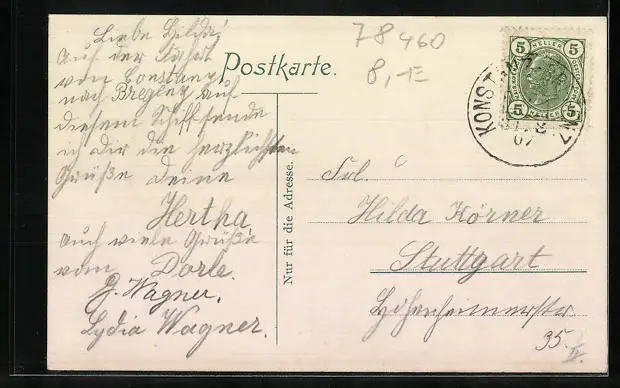 Liebe Hilda!
Auf der Fahrt
von Constanz
nach Bregenz auf
diesem Schiff sende
ich dir die herzlichsten
Grüße deine
Hertha
auch viele Grüße
vom Dorle.
G. Wagner.
Lydia Wagner.
78460
8,-
Postkarte.
5 HELLER 5
5 HELLER 5
KONST
07
Nur für die Adresse.
Frl.
Hilda Körner
Stuttgart
Hohenheimerstr
35.